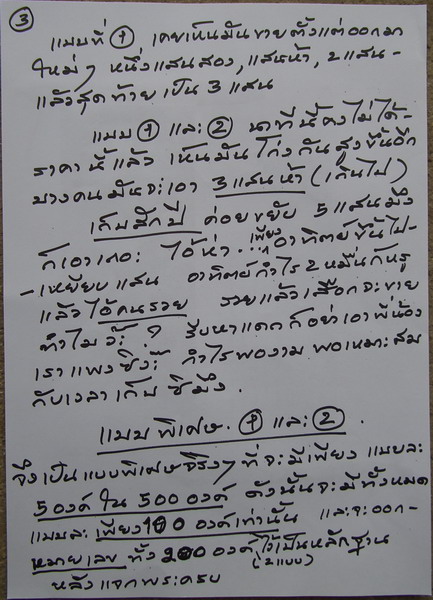 ③
แบบที่ ① เคยเห็นมันขายตั้งแต่ออกมา
ใหม่ๆ หนึ่งแสนสอง, แสนห้า, 2แสน -
แล้วสุดท้ายเป็น 3 แสน
แบบ ① และ ② นาทีนี้คงไม่ได้-
ราคานี้แล้ว เห็นมันโก่งกันสูงขึ้นอีก
บางคนมันจะเอา 3 แสนห้า (เกินไป)
เก็บสักปี ค่อยขยับ 5 แสนมึง
ก็เอาเถอะ ไอ้ห่า. เพียงอาทิตย์ขึ้นไป-
- เหยียบแสน อาทิตย์กำไร 2 หมื่นกับกู
แล้วไอ้คนรวย รวยแล้วเสือกจะขาย
ทำไมวะ ? รีบหาแดกก็อย่าเอาพี่น้อง
เราแพงซิวะ กำไรพองาม พอเหมาะสม
กับเวลาเก็บซิมึง.
แบบพิเศษ. ① และ ② .
จึงเป็นแบบพิเศษจริงๆ ที่จะมีเพียง แบบละ
5 องค์ ใน 500 องค์ ดังนั้นจะมีทั้งหมด
แบบละ เพียง 100 องค์เท่านั้น และจะออก-
หมายเลข ทั้ง 200 องค์ ไว้เป็นหลักฐาน
(2แบบ)
หลังแจกพระครบ